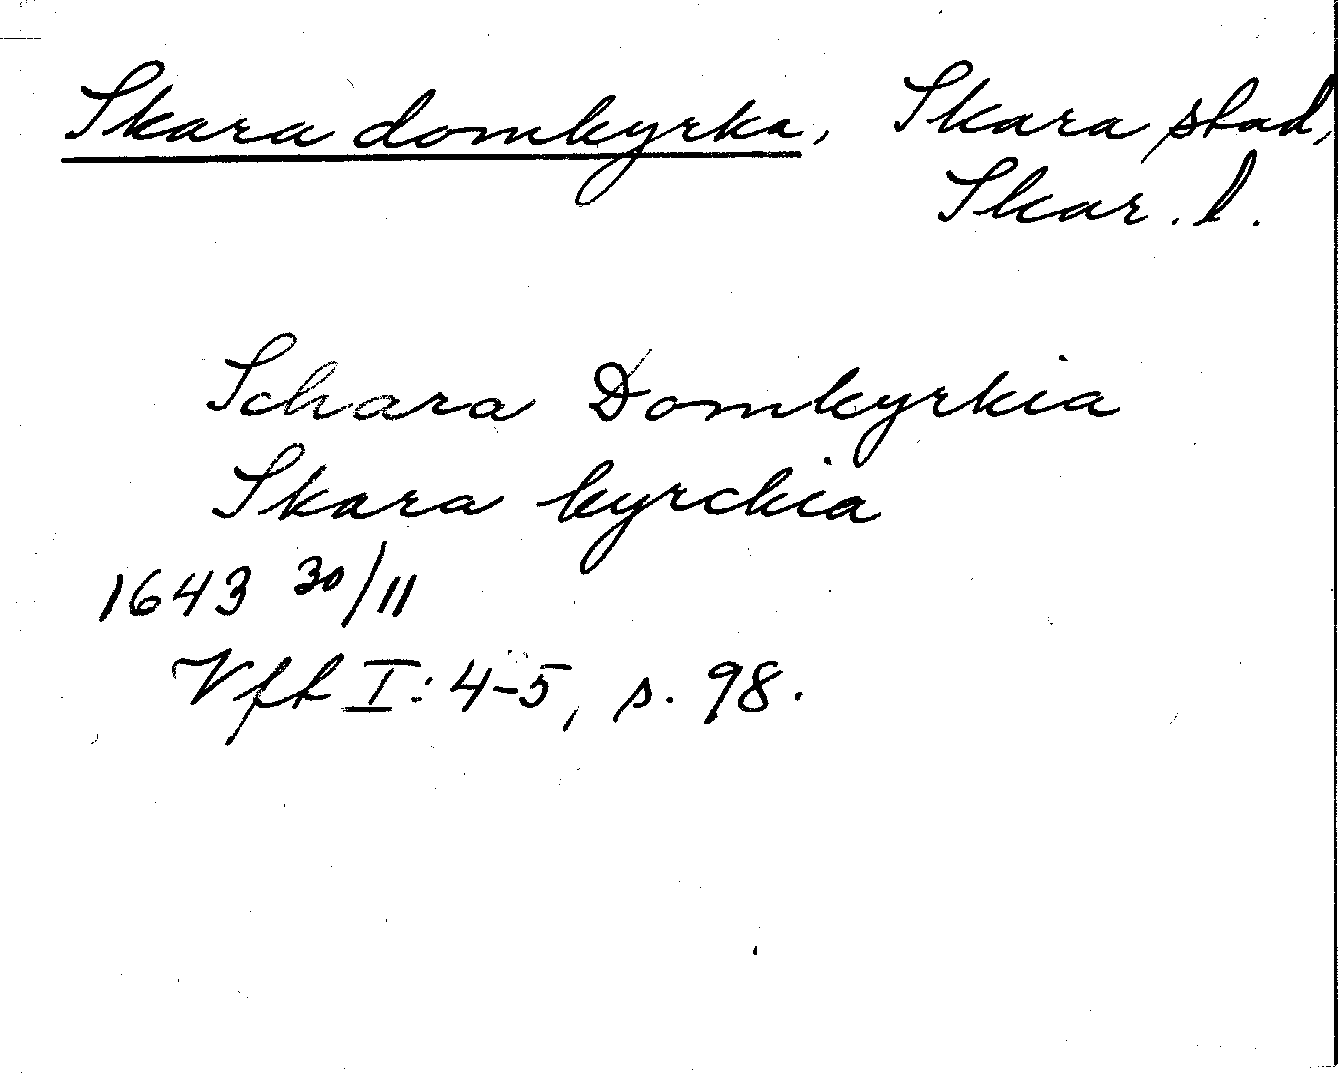 Skara domkyrka, Skara stad,
Skar. l.
Schara Domkyrkia
Skara kyrckia
1643 30/11
Vft I: 4-5, s. 98.